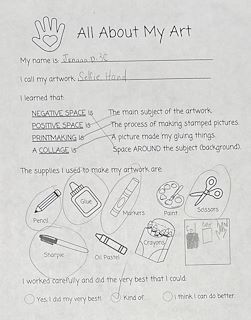 All About My Art
My name is
I call my artwork Selkie Hand
I learned that:
NEGATIVE SPACE is The main subject of the artwork.
POSITIVE SPACE is The process of making stamped pictures.
PRINTMAKING is A picture made my glueing things.
A COLLAGE is Space AROUND the subject (background).
The supplies I used to make my artwork are:
Glue Markers Paint Scissors
Pencil
Sharpie Oil Pastel Crayons
I worked carefully and did the very best that I could:
Yes, I did my very best! Kind of. I think I can do better.